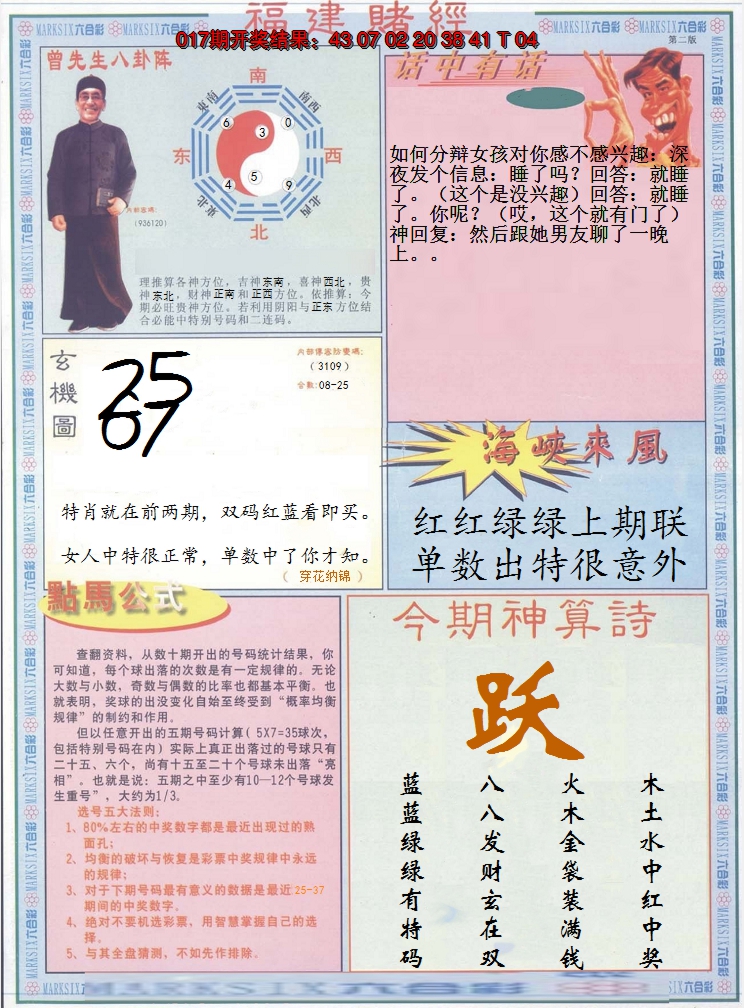 福建賭經
017期开奖结果：43 07 02 20 38 41 T 04
MARKSIX六合彩 MARKSIX六合彩 MARKSIX六合彩 MARKSIX六合彩
第二版
曾先生八卦阵
南
东南
南西
6 3 0
东
西
4 5 9
东北
北西
北
(936120)
理推算各神方位，吉神东南，喜神西北，贵
神东北，财神正南和正西方位。依推算：今
期必旺贵神方位。若利用阴阳与正东方位结
合必能中特别号码和二连码。
话中有话
如何分辩女孩对你感不感兴趣：深
夜发个信息：睡了吗？回答：就睡
了。（这个是没兴趣）回答：就睡
了。你呢？（哎，这个就有门了）
神回复：然后跟她男友聊了一晚
上。。
玄機圖
25
67
(3109)
合数:08-25
特肖就在前两期，双码红蓝看即买。
女人中特很正常，单数中了你才知。
（ 穿花纳锦 ）
海峡來風
红红绿绿上期联
单数出特很意外
點馬公式
查翻资料，从数十期开出的号码统计结果，你
可知道，每个球出落的次数是有一定规律的。无论
大数与小数，奇数与偶数的比率也都基本平衡。也
就表明，奖球的出没变化自始至终受到“概率均衡
规律”的制约和作用。
但以任意开出的五期号码计算( 5X7=35球次，
包括特别号码在内) 实际上真正出落过的号球只有
二十五、六个，尚有十五至二十个号球未出落“亮
相”。也就是说：五期之中至少有10—12个号球发
生重号”，大约为1/3。
选号五大法则：
1、80%左右的中奖数字都是最近出现过的熟
面孔；
2、均衡的破坏与恢复是彩票中奖规律中永远
的规律；
3、对于下期号码最有意义的数据是最近25-37
期间的中奖数字。
4、绝对不要机选彩票，用智慧掌握自己的选
择。
5、与其全盘猜测，不如先作排除。
今期神算詩
跃
蓝蓝绿绿有特码
八八发财玄在双
火木金袋装满钱
木土水中红中奖